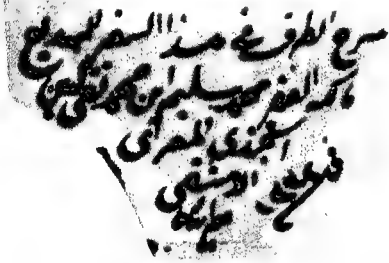 سرح الطرف في هذا السفر البديع
مالكه الفقير محمد سليم ابن محمد تقي الدين
الجندي المعري
الدمشقي